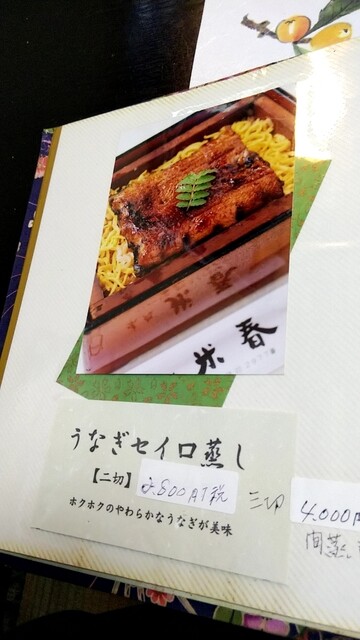 春
米
うなぎセイロ蒸し
【二切】2,800円税 三切 4,000円
ホクホクのやわらかなうなぎが美味